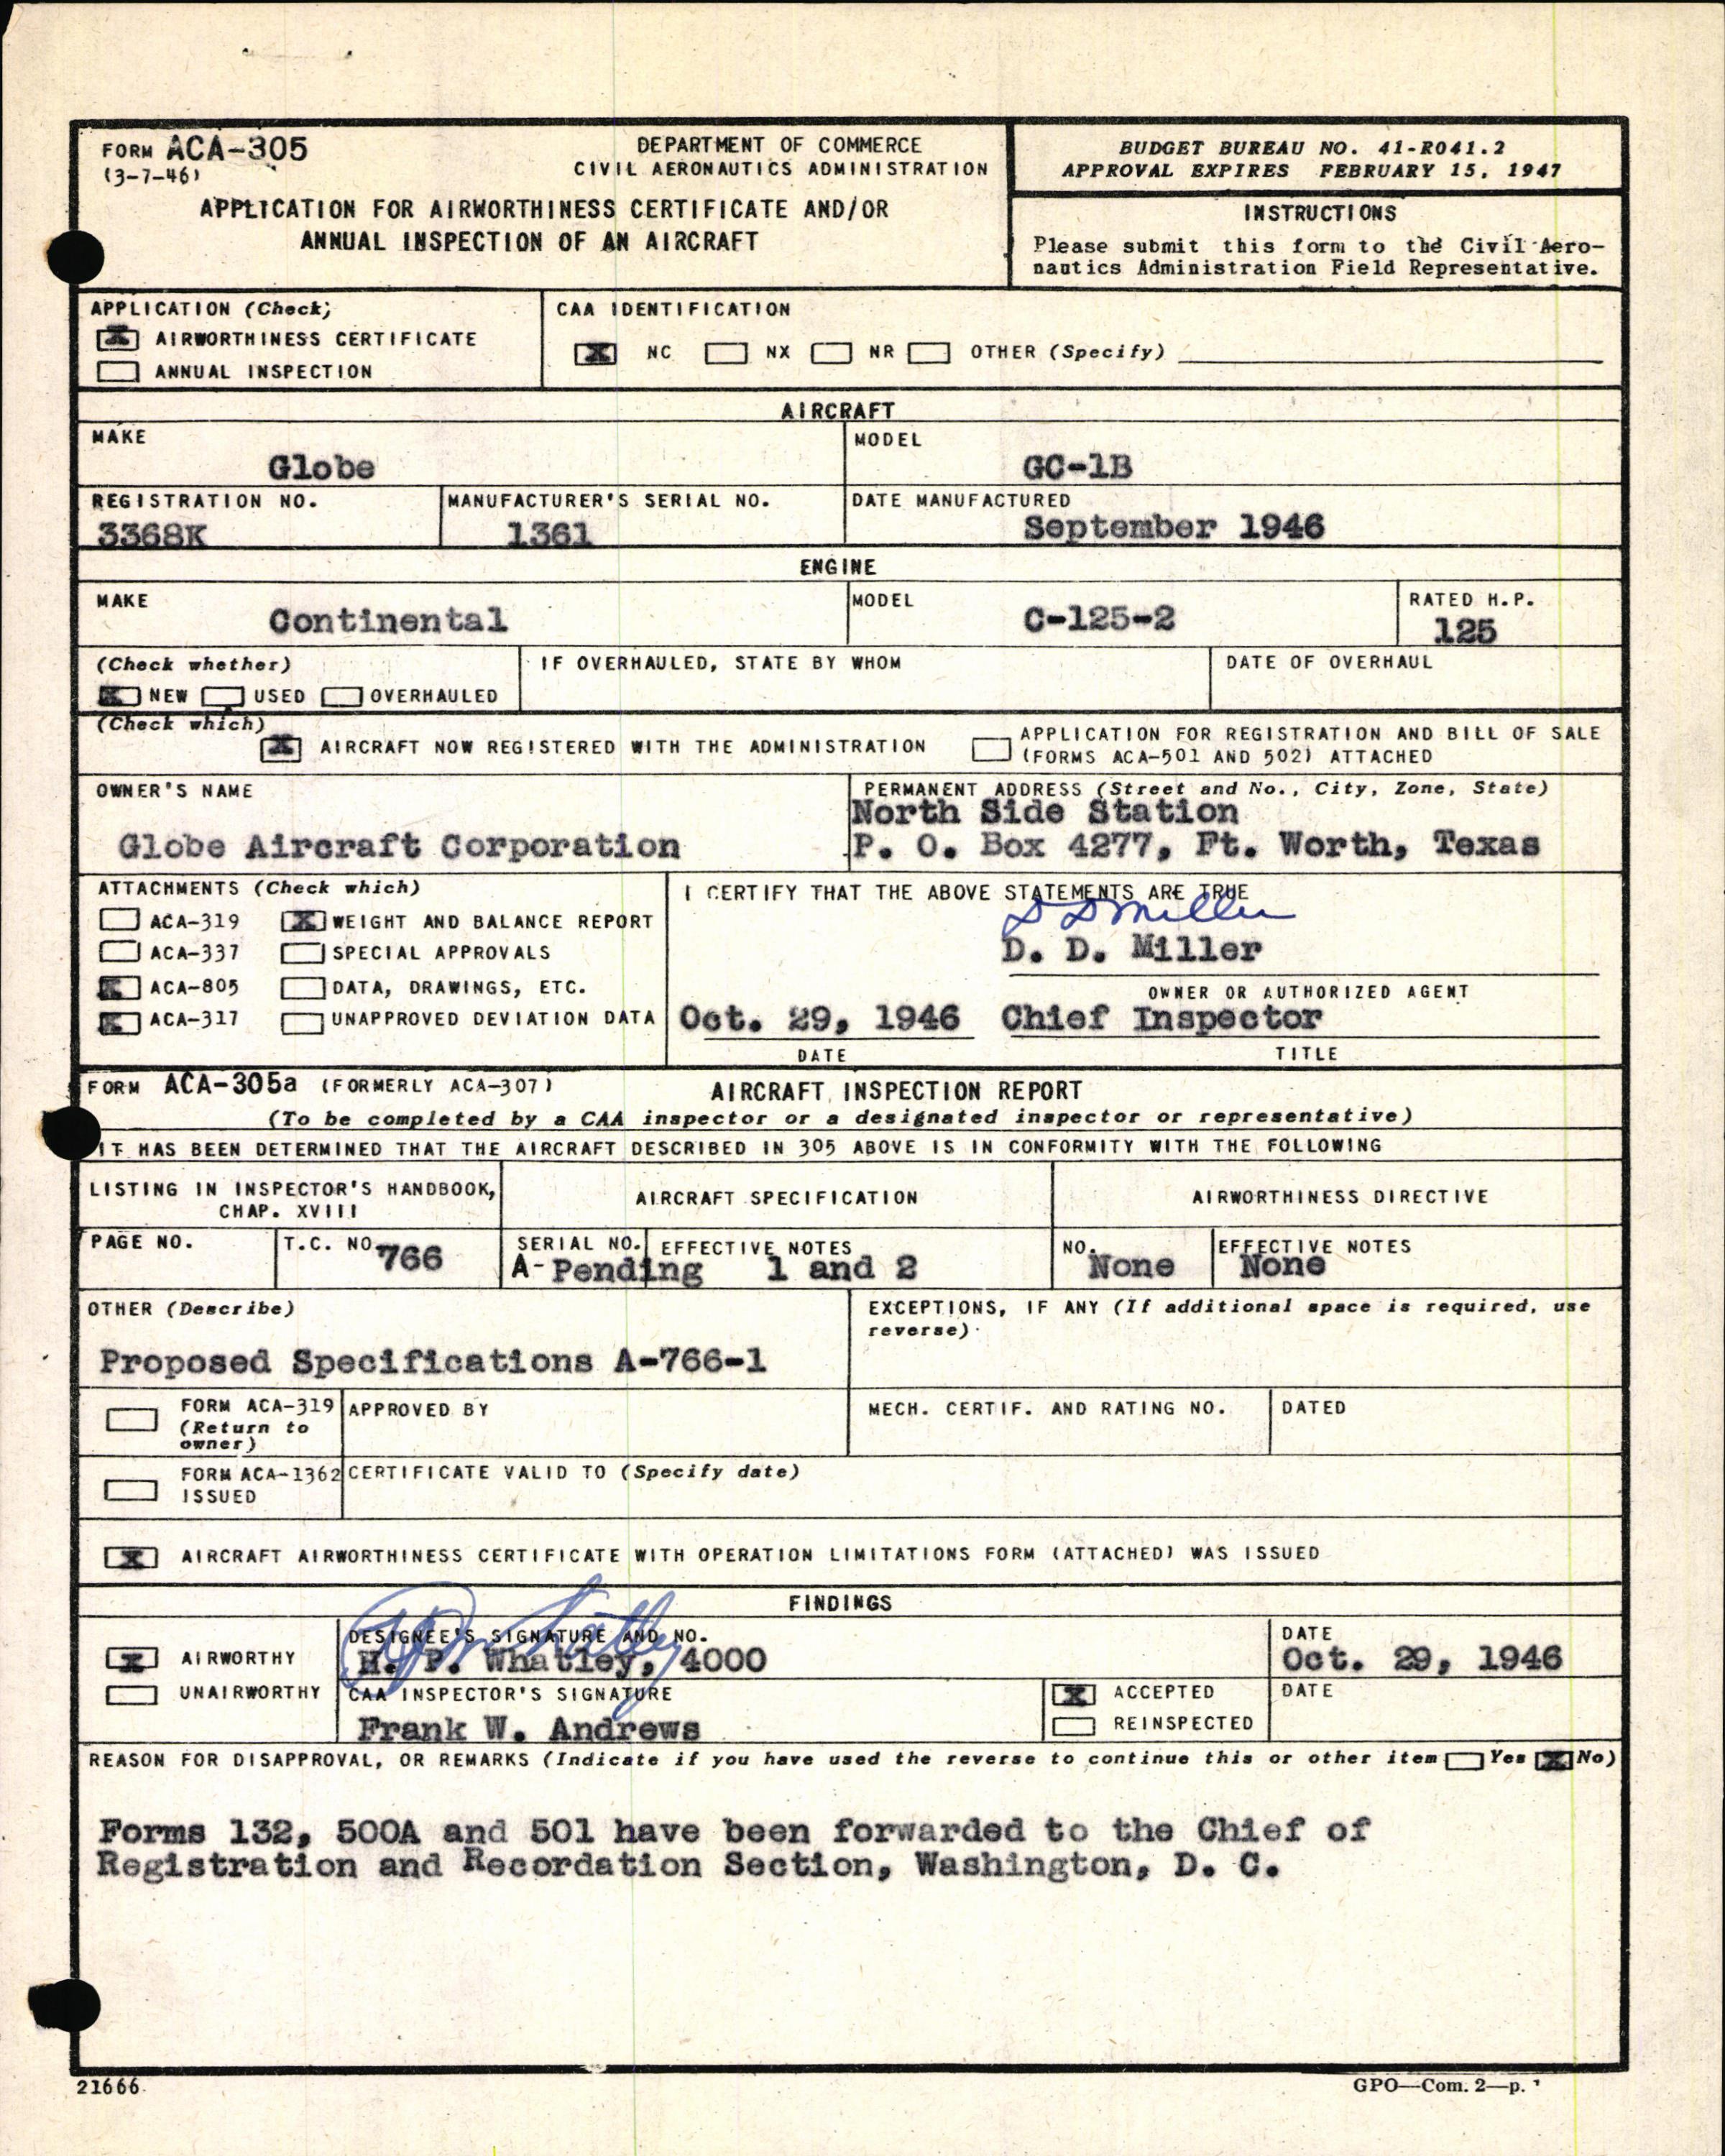 FORM ACA-305
(3-7-46)
DEPARTMENT OF COMMERCE
CIVIL AERONAUTICS ADMINISTRATION
APPLICATION FOR AIRWORTHINESS CERTIFICATE AND/OR
ANNUAL INSPECTION OF AN AIRCRAFT
BUDGET BUREAU NO. 41-R041.2
APPROVAL EXPIRES FEBRUARY 15, 1947
INSTRUCTIONS
Please submit this form to the Civil Aero-
nautics Administration Field Representative.
APPLICATION (Check)
X AIRWORTHINESS CERTIFICATE
ANNUAL INSPECTION
CAA IDENTIFICATION
X NC NX NR OTHER (Specify)
AIRCRAFT
MAKE
Globe
MODEL
GC-1B
REGISTRATION NO.
3368K
MANUFACTURER'S SERIAL NO.
1361
DATE MANUFACTURED
September 1946
ENGINE
MAKE
Continental
MODEL
C-125-2
RATED H.P.
125
(Check whether)
X NEW USED OVERHAULED
IF OVERHAULED, STATE BY WHOM
DATE OF OVERHAUL
(Check which)
X AIRCRAFT NOW REGISTERED WITH THE ADMINISTRATION
APPLICATION FOR REGISTRATION AND BILL OF SALE
(FORMS ACA-501 AND 502) ATTACHED
OWNER'S NAME
Globe Aircraft Corporation
PERMANENT ADDRESS (Street and No., City, Zone, State)
North Side Station
P. O. Box 4277, Ft. Worth, Texas
ATTACHMENTS (Check which)
ACA-319 X WEIGHT AND BALANCE REPORT
ACA-337 SPECIAL APPROVALS
X ACA-805 DATA, DRAWINGS, ETC.
X ACA-317 UNAPPROVED DEVIATION DATA
I CERTIFY THAT THE ABOVE STATEMENTS ARE TRUE
D D Miller
D. D. Miller
OWNER OR AUTHORIZED AGENT
Oct. 29, 1946 Chief Inspector
DATE TITLE
FORM ACA-305a (FORMERLY ACA-307) AIRCRAFT INSPECTION REPORT
(To be completed by a CAA inspector or a designated inspector or representative)
IT HAS BEEN DETERMINED THAT THE AIRCRAFT DESCRIBED IN 305 ABOVE IS IN CONFORMITY WITH THE FOLLOWING
LISTING IN INSPECTOR'S HANDBOOK,
CHAP. XVIII
AIRCRAFT SPECIFICATION
AIRWORTHINESS DIRECTIVE
PAGE NO.
T.C. NO.
766
SERIAL NO.
A- Pending
EFFECTIVE NOTES
1 and 2
NO.
None
EFFECTIVE NOTES
None
OTHER (Describe)
Proposed Specifications A-766-1
EXCEPTIONS, IF ANY (If additional space is required, use
reverse)
FORM ACA-319
(Return to
owner)
APPROVED BY
MECH. CERTIF. AND RATING NO.
DATED
FORM ACA-1362
ISSUED
CERTIFICATE VALID TO (Specify date)
X AIRCRAFT AIRWORTHINESS CERTIFICATE WITH OPERATION LIMITATIONS FORM (ATTACHED) WAS ISSUED
FINDINGS
X AIRWORTHY
UNAIRWORTHY
DESIGNEE'S SIGNATURE AND NO.
HP Whatley
H. P. Whatley, 4000
DATE
Oct. 29, 1946
CAA INSPECTOR'S SIGNATURE
Frank W. Andrews
X ACCEPTED
REINSPECTED
DATE
REASON FOR DISAPPROVAL, OR REMARKS (Indicate if you have used the reverse to continue this or other item Yes X No)
Forms 132, 500A and 501 have been forwarded to the Chief of
Registration and Recordation Section, Washington, D. C.
21666
GPO—Com. 2—p.